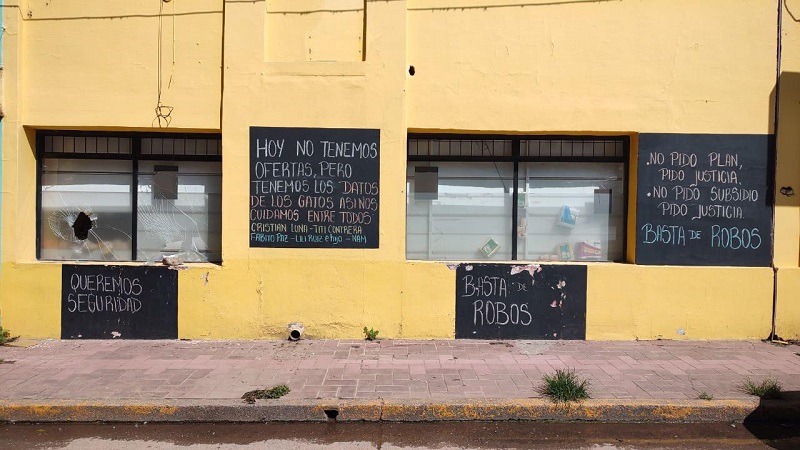 QUEREMOS
SEGURIDAD
HOY NO TENEMOS
OFERTAS, PERO
TENEMOS LOS DATOS
DE LOS GATOS ASI NOS
CUIDAMOS ENTRE TODOS
CRISTIAN LUNA - TITI CONTRERA
FABITO PAZ - LILI RUIZ E HIJO - NAM
BASTA DE
ROBOS
.NO PIDO PLAN,
PIDO JUSTICIA.
.NO PIDO SUBSIDIO
PIDO JUSTICIA.
BASTA DE ROBOS